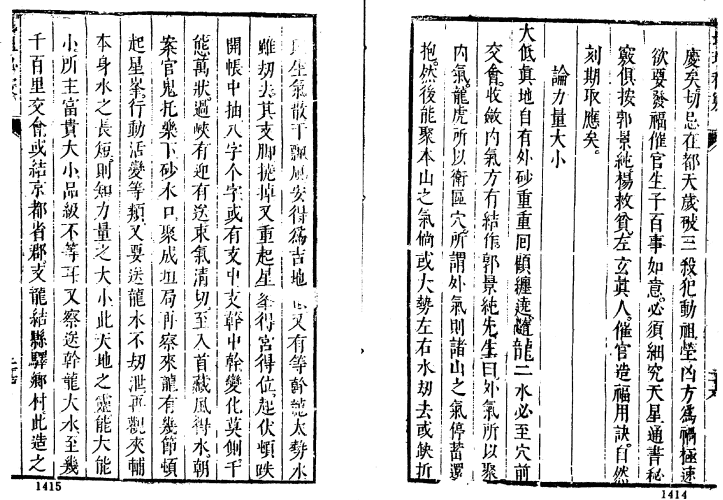 慶矣切忌在都天歲破三殺犯動祖塋凶方為禍極速
欲要發福催官生子百事如意必須細究天星通書秘
竅俱按郭景純楊救貧左玄真人催官造福用訣自然
刻期取應矣。
論力量大小
大低真地自有外砂重重回顧纏遶隨龍二水必至穴前
交會收斂內氣方有結作郭景純先生曰外氣所以聚
內氣龍虎所以衛區穴所謂外氣則諸山之氣停蓄還
抱然後能聚本山之氣倘或大勢左右水刼去或缺折
1414
生氣散于飄風安得為吉地 又有等幹龍大勢水
雖刼去其支脚撓掉又重起星峯得宮得位起伏頓跌
開帳中抽八字个字或有支中支幹中幹變化莫測千
態萬狀過峽有迎有送束氣清切至入首藏風得水朝
案官鬼托樂下砂水口聚成垣局再察來龍有幾節頓
起星峯行動活變等類又要送龍水不刼泄再觀夾輔
本身水之長短則知力量之大小此天地之靈能大能
小所主富貴大小品級不等耳又察送幹龍大水至幾
千百里交會或結京都省郡支龍結縣驛鄉村此造之
1415